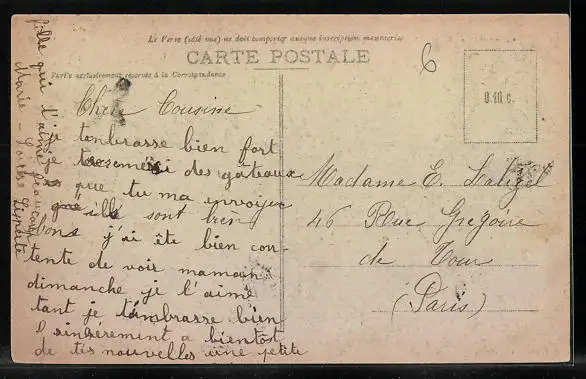 Le Verso (côté vue) ne doit comporter aucune inscription manuscrite
CARTE POSTALE
Partie exclusivement réservée à la Correspondance
6
0.10 c.
Chère Cousine
je tembrasse bien fort
je te remersi des gateaux
que tu ma envoyer
que ille sont bien
bons j'ai été bien con-
tente de voir maman
dimanche je l'aime
tant je tembrasse bien
sinsérement a bientôt
de tes nouvelles une petite
fille qui t'aime beaucoup
Marie
Madame E.
46 Rue Gregoire
de Tour
(Paris)